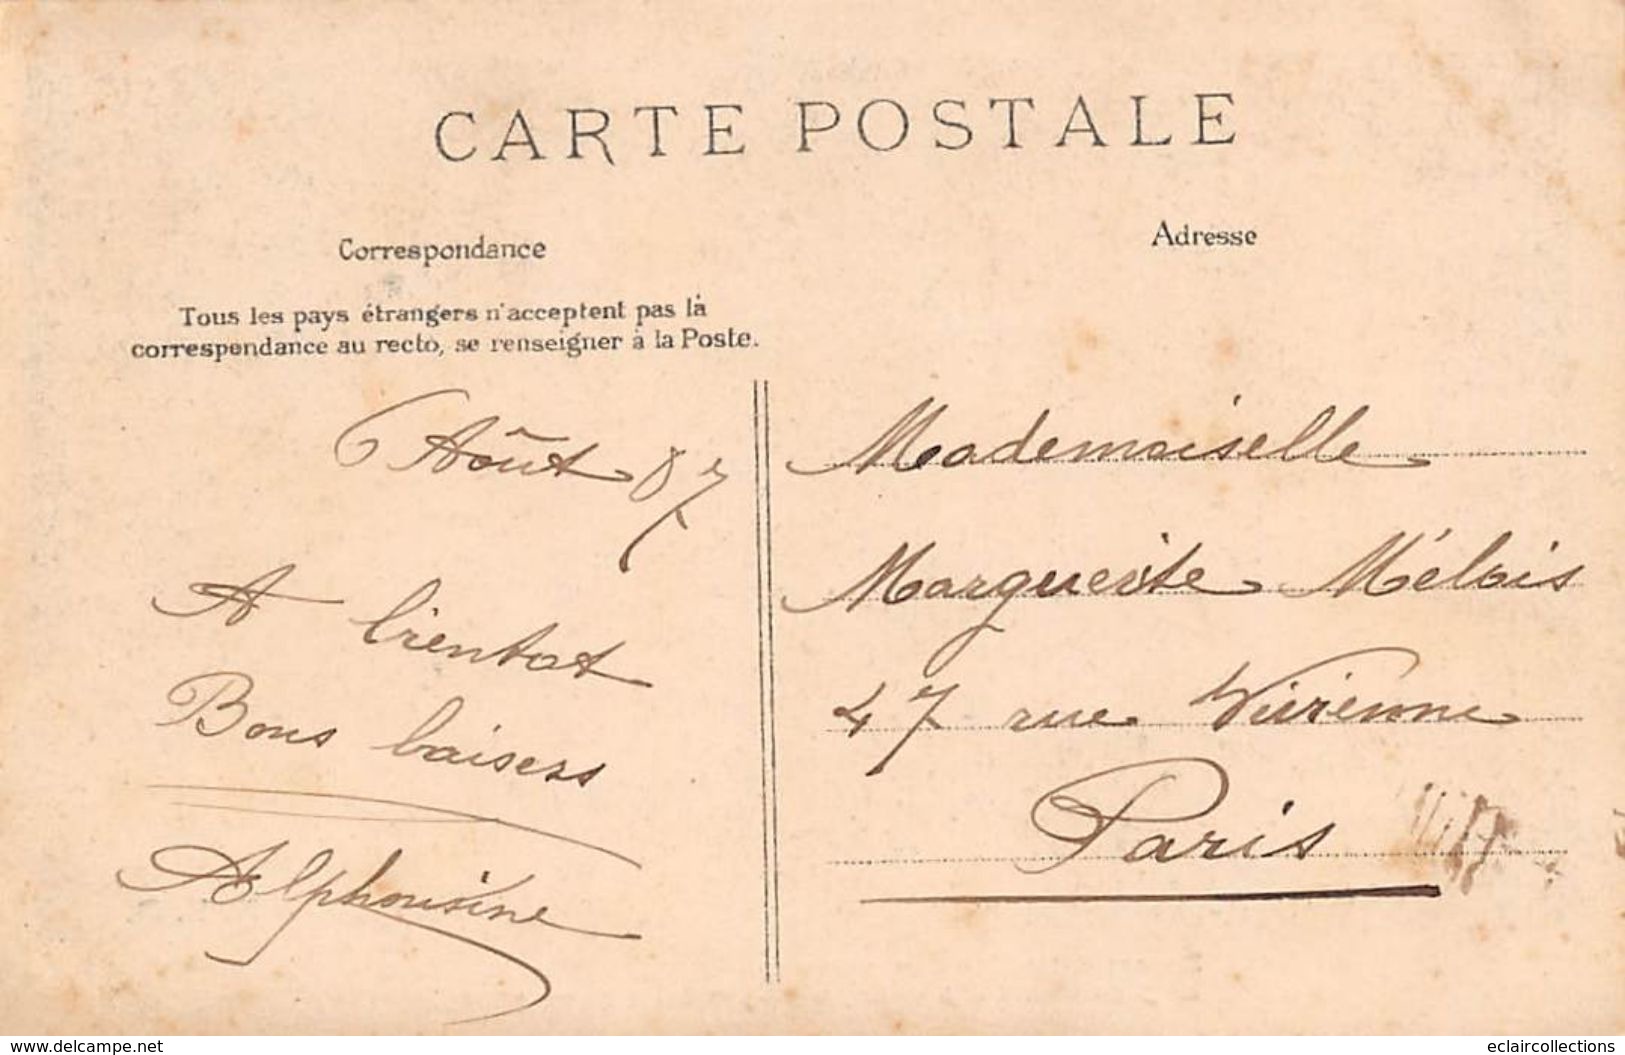 CARTE POSTALE
Correspondance
Tous les pays étrangers n'acceptent pas la
correspondance au recto, se renseigner à la Poste.
6 Août 07
A bientot
Bons baisers
Alphonsine
Adresse
Mademoiselle
Marguerite Mélois
47 rue Vivienne
Paris
www.delcampe.net
eclaircollections